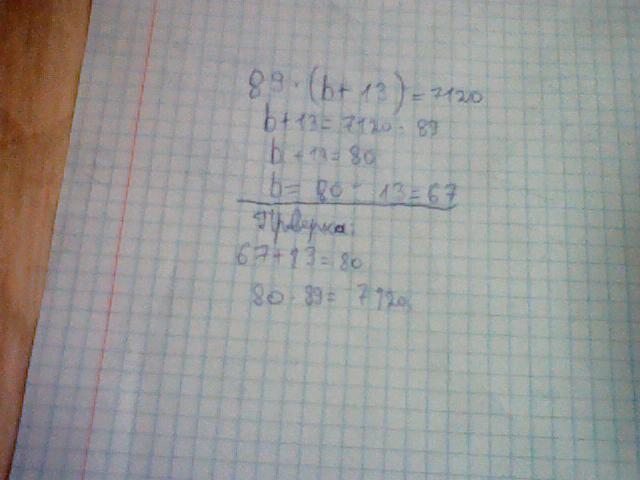 89 · (b + 13) = 7120
b + 13 = 7120 : 89
b + 13 = 80
b = 80 - 13 = 67
Проверка:
67 + 13 = 80
80 · 89 = 7120